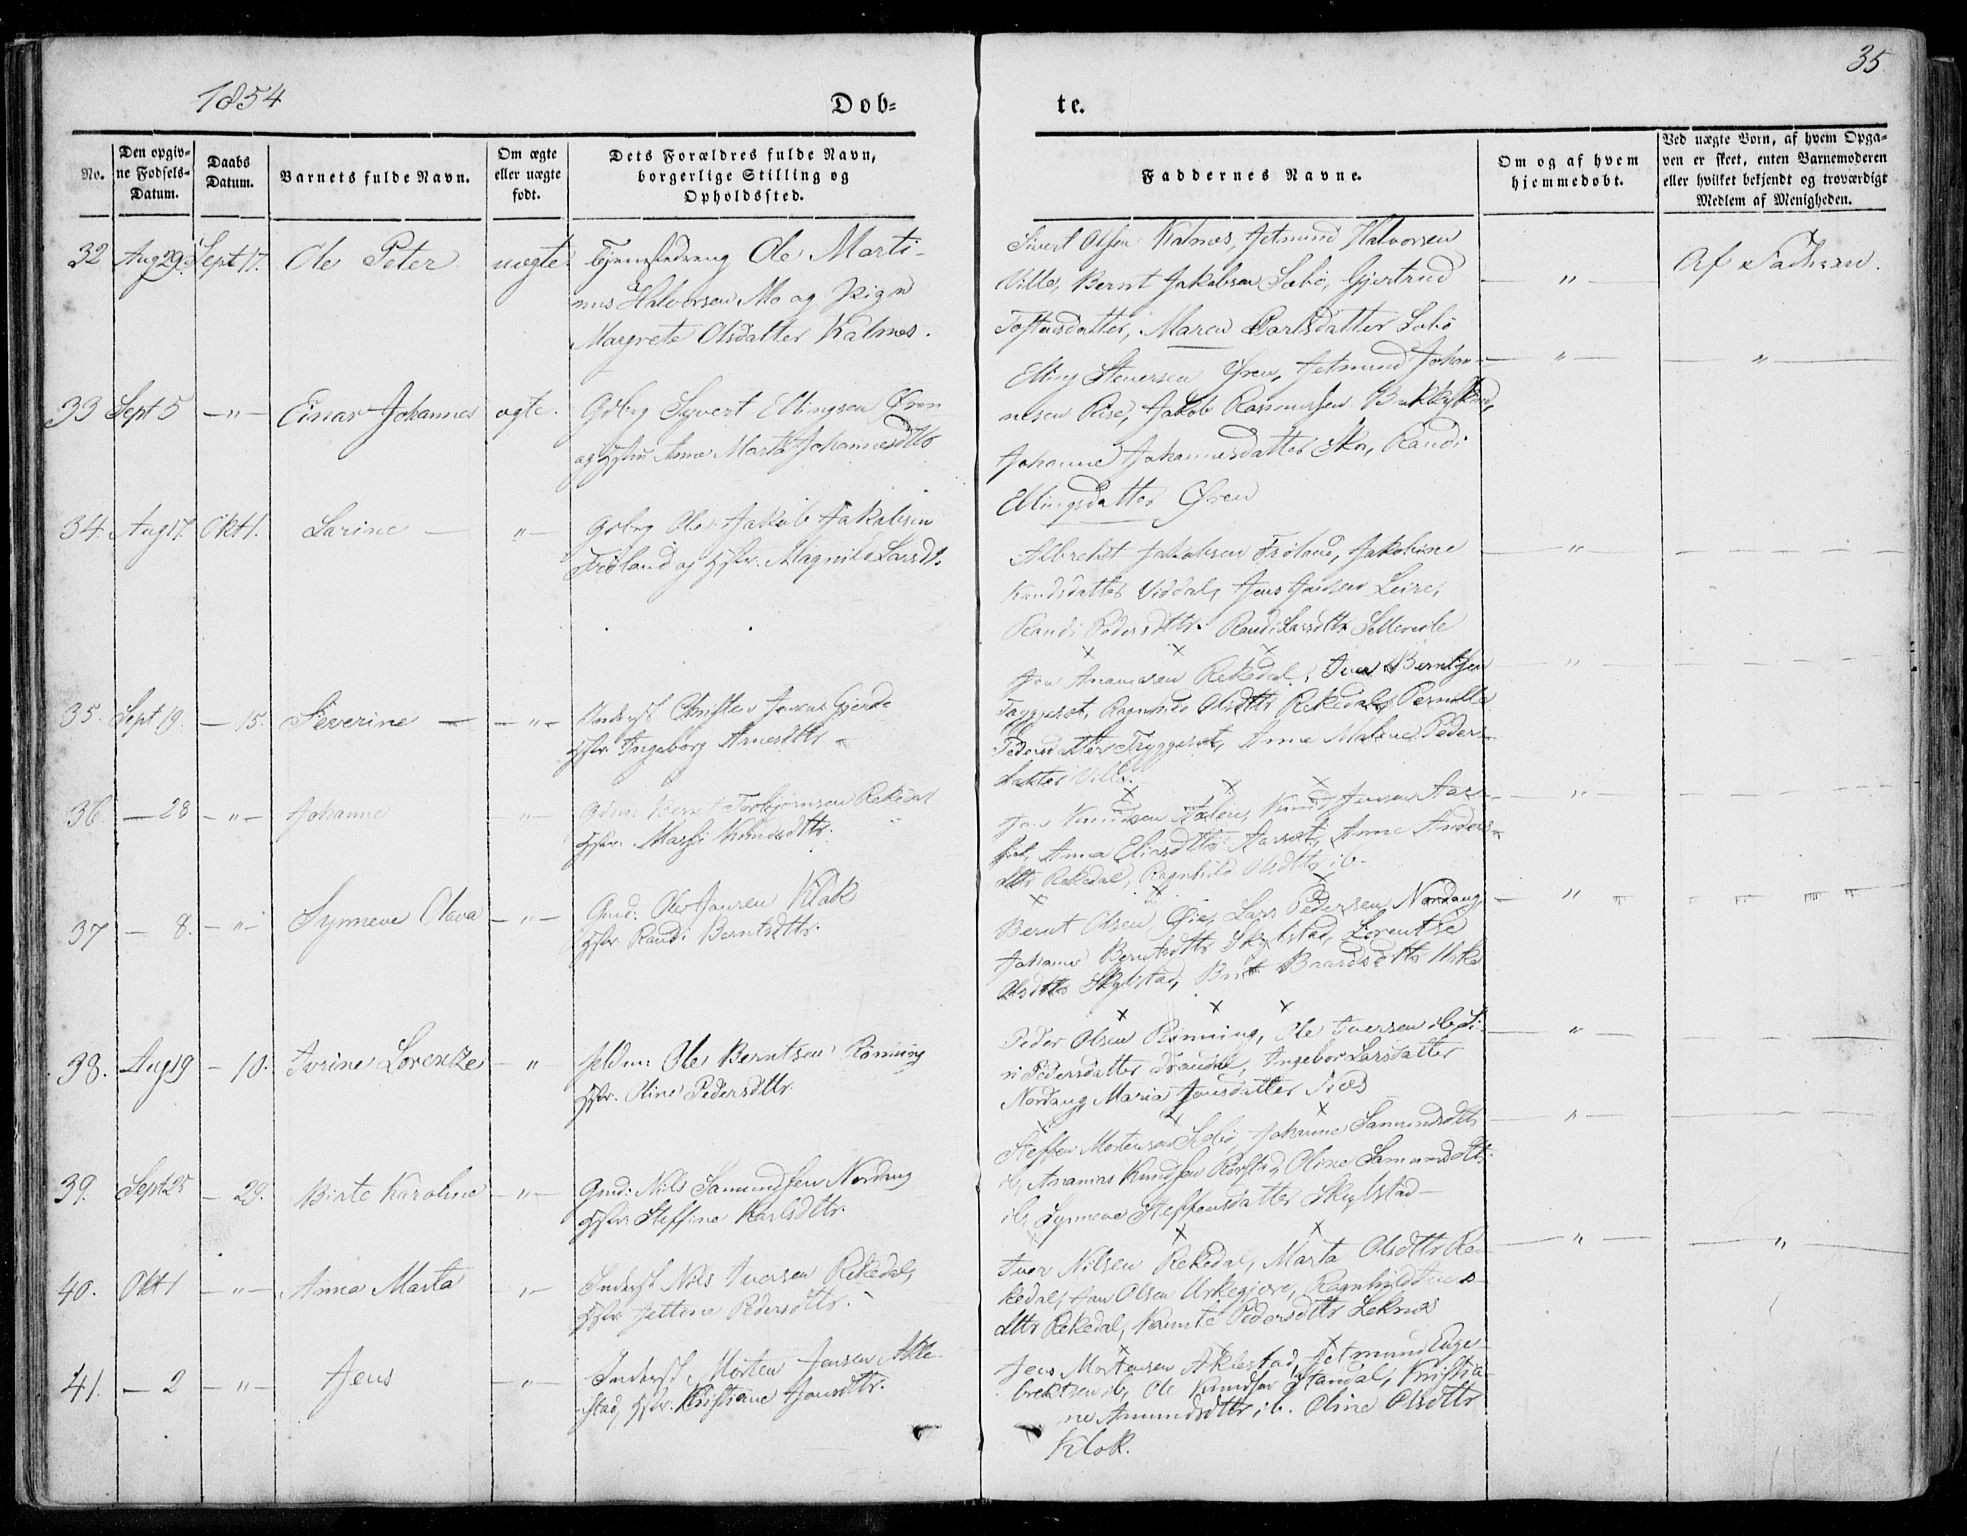 35
1854
Døb-
te.
No.
Den opgiv-
ne Fødsels-
Datum.
Daabs
Datum.
Barnets fulde Navn.
Om ægte
eller uægte
født.
Dets Forældres fulde Navn,
borgerlige Stilling og
Opholdssted.
Faddernes Navne.
Om og af hvem
hjemmedøbt.
Ved uægte Børn, af hvem Opga-
ven er skeet, enten Barnemoderen
eller hvilket bekjendt og troværdigt
Medlem af Menigheden.
32 Aug 29. Sept 17. Ole Peter uægte Ole Marti-
nus Halvorsen Mo og Pige
Margrete Olsdatter Kalnes.
Sivert Olsen Kalnes, Jetmund Halvorsen
Ville, Bernt Jakobsen Sæbø, Gjertrud
datter, Maren Carlsdatter Sæbø
" Af Faderen.
33 Sept 5 — " — Einar Johannes ægte. Gdbrg Syvert Ellingsen Øren
og Hstru Anne Marta Johannesdttr
Elling Steversen Øren, Jetmund Johan-
nesen Rise, Jakob Rasmussen
Johanne Johannesdatter Skor, Randi
Ellingsdatter Øren
" "
34. Aug 17. Okt 1. Larine — " — Gdbrg Ole Jakob Jakobsen
Frøland og Hstr. Magnila Larsdt.
Albrekt Jakobsen Frøland, Jakobine
Knudsdatter Viddal, Jens Jensen Leire,
Randi Pedersdttr. Randi Larsdttr
"
35. Sept 19. — 15. Severine — " — Inderst Christen Jensen Gjerde
Hstr. Ingeborg Arnesdttr
Jon Ananiasen Rekedal, Iver Berntsen
Tryggeset, Ragnhild Olsdttr Rekedal, Pernille
Pedersdatter Tryggeset, Anne Malene Peders-
datter Ville.
"
36. — 28 — " — Johanne — " — Bernt Torbjørnsen Rekedal
Hstr. Marthe Knudsdttr.
Jon Knudsen Aalen, Knud Jensen Aar-
set, Anna Eliasdttr Aarset, Anne Anders-
dttr Rekedal, Ragnhild Olsdttr ib.
"
37 — 8. — " — Synneve Olava — " — Gmd. Ole Jansen Klok
Hstr. Randi Berntsdttr.
Bernt Olsen Øie, Lars Pedersen Nordang,
Johanne Berntsdttr Skylstad, Lorentse
Olsdttr Skylstad, Brit Baardsdttr Urke
"
38. Aug 19 — 10. Ivrine Lorentze — " — Ole Berntsen Rønning
Hstr. Oline Pedersdttr.
Peder Olsen Rønning, Ole Iversen ib, Si-
ri Pedersdatter, Ingebor Larsdatter
Nordang, Maria Jonsdatter Næs
"
39. Sept 25 — 29. Birte Karoline — " — Gmd: Nils Samundsen Nordang
Hstr: Steffine Karlsdttr.
Steffen Mortensen Sæbø, Johanne Samundsdttr
ib, Ananias Knudsen Rørstad, Oline Samundsdttr
ib, Synneve Steffensdatter Skylstad —
"
40. Okt 1 — " — Anna Marta — " — Inderst Nils Iversen Rekedal,
Hstr Jettine Pedersdttr.
Iver Nilsen Rekedal, Marta Olsdttr Re-
kedal, Jon Olsen Urkegjere, Ragnhild Ivers-
dttr Rekedal, Pedersdttr Leknes
" "
41. — 2 — " — Jens — " — Inderst. Morten Jensen Akle-
stad, Hstr. Kristiane Jonsdttr.
Jens Mortensen Aklestad, Jetmund Enge-
brektsen ib, Ole Knudsen Standal, Kristia-
ne Amundsdttr ib. Oline Olsdttr
Klok.